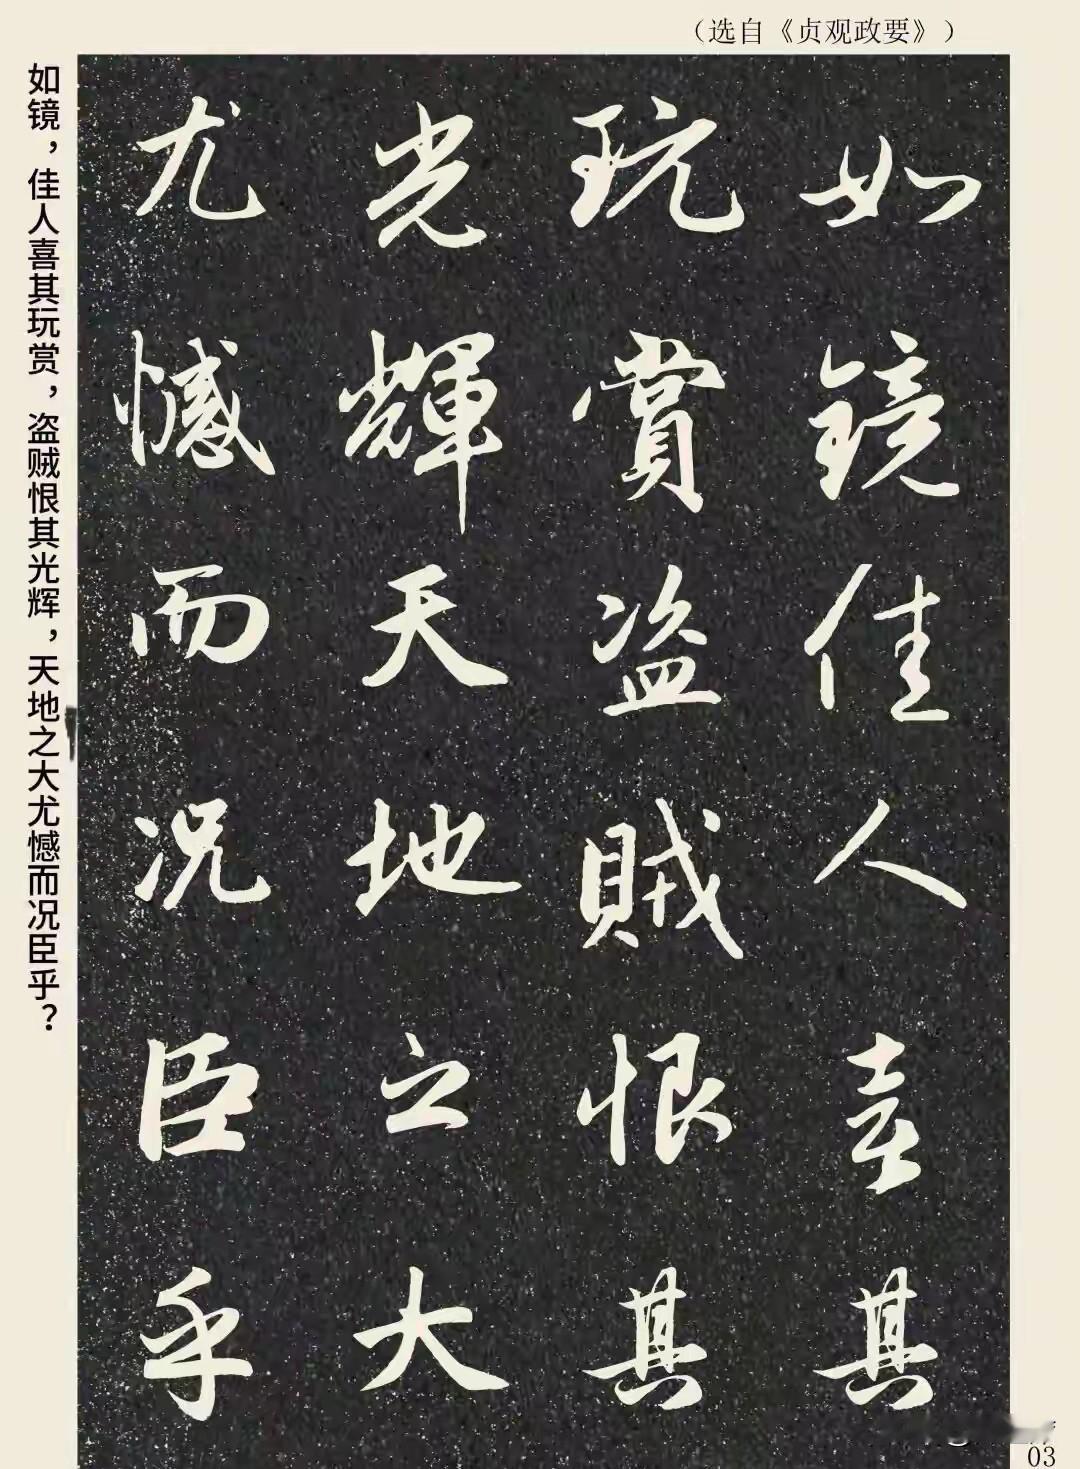 （选自《贞观政要》）
如镜佳人喜其
玩賞盗賊恨其
光輝天地之大
尤憾而况臣乎
如镜，佳人喜其玩赏，盗贼恨其光辉，天地之大尤憾而况臣乎？
03